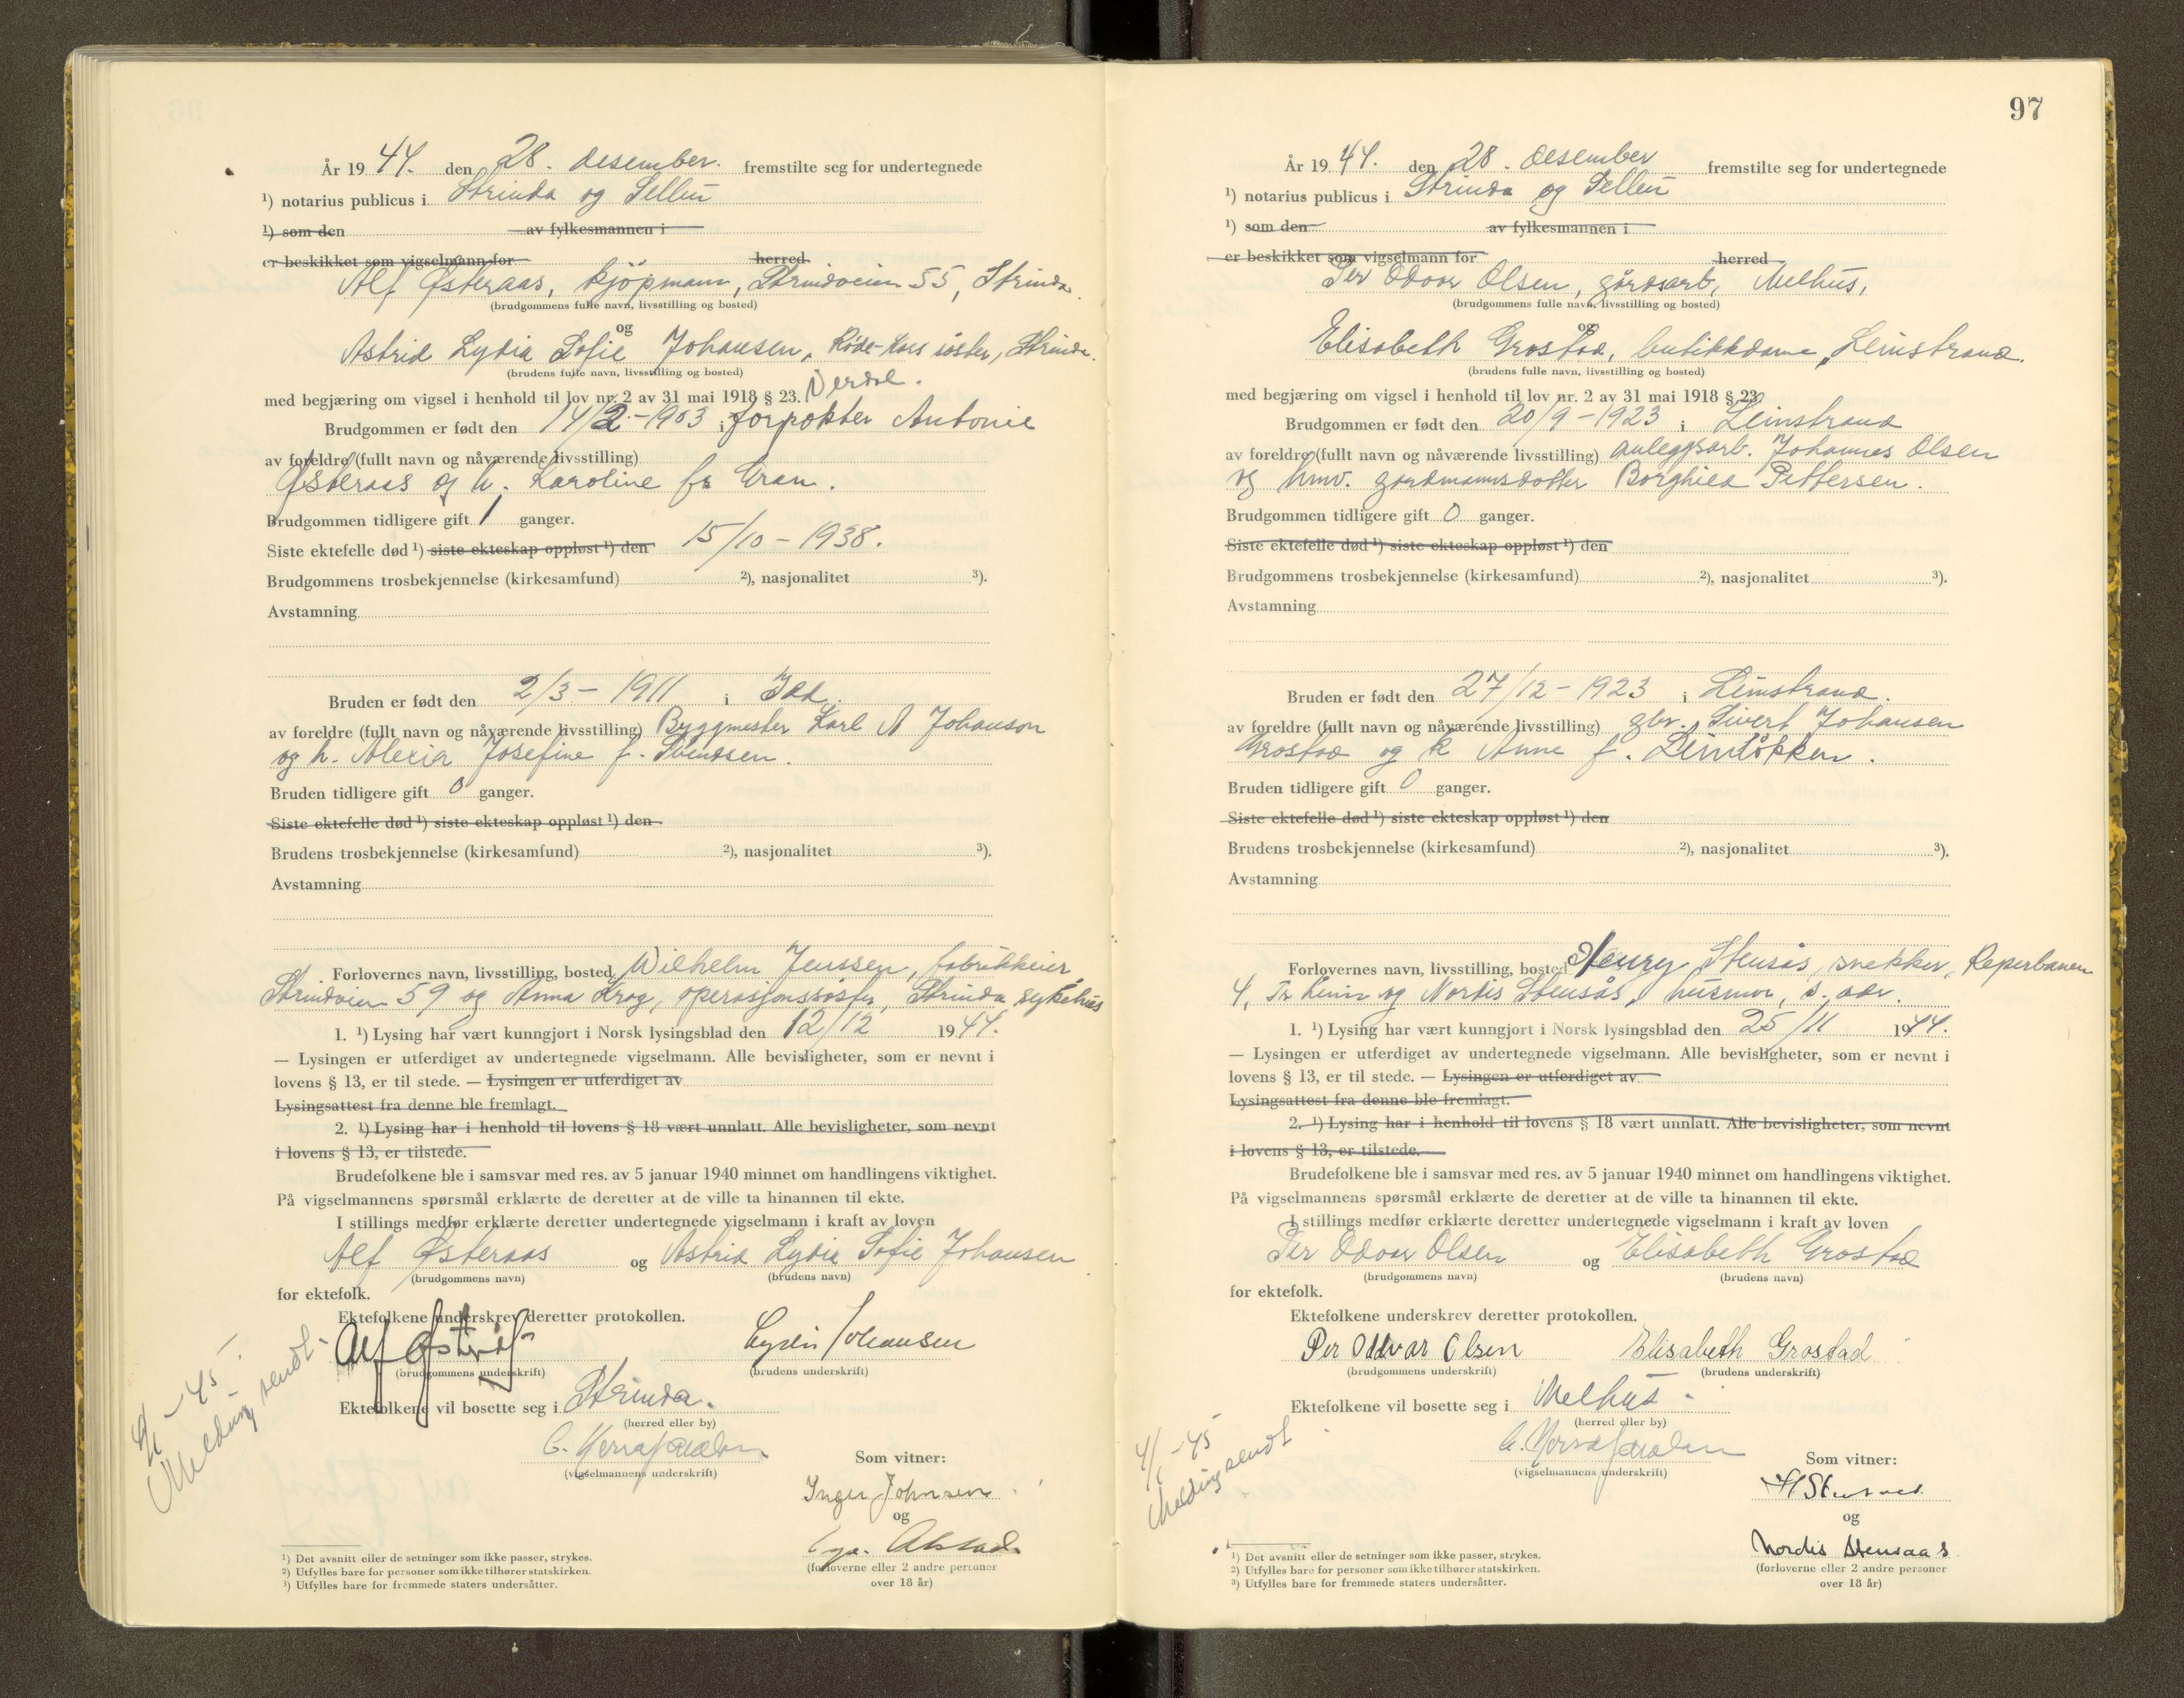 År 19 44. den 28. desember. fremstilte seg for undertegnede
¹) notarius publicus i Strinda og Selbu
¹) som den av fylkesmannen i
er beskikket som vigselmann for herred
Alf Østeraas, kjöpmann, Strindveien 55, Strinda.
(brudgommens fulle navn, livsstilling og bosted)
og
Astrid Lydia Sofie Johansen, Røde-Kors søster, Strinda.
(brudens fulle navn, livsstilling og bosted)
med begjæring om vigsel i henhold til lov nr. 2 av 31 mai 1918 § 23. Verdal.
Brudgommen er født den 14/2-1903 i forpakter Antonie
av foreldre (fullt navn og nåværende livsstilling)
Østeraas og h. Karoline f. Gran.
Brudgommen tidligere gift 1 ganger.
Siste ektefelle død ¹) siste ekteskap oppløst ¹) den 15/10-1938.
Brudgommens trosbekjennelse (kirkesamfund) ²), nasjonalitet ³).
Avstamning
Bruden er født den 2/3-1911 i Idd
av foreldre (fullt navn og nåværende livsstilling) Byggmester Karl A Johanson
og h. Alexia Josefine f. Svendsen.
Bruden tidligere gift 0 ganger.
Siste ektefelle død ¹) siste ekteskap oppløst ¹) den
Brudens trosbekjennelse (kirkesamfund) ²), nasjonalitet ³).
Avstamning
Forlovernes navn, livsstilling, bosted Wilhelm Jenssen, fabrikkeier
Strindveien 59 og Anna Krog, operasjonssøster, Strinda sykehus
1. ¹) Lysing har vært kunngjort i Norsk lysingsblad den 12/12 19 44.
— Lysingen er utferdiget av undertegnede vigselmann. Alle bevisligheter, som er nevnt i
lovens § 13, er til stede. — Lysingen er utferdiget av
Lysingsattest fra denne ble fremlagt.
2. ¹) Lysing har i henhold til lovens § 18 vært unnlatt. Alle bevisligheter, som nevnt
i lovens § 13, er tilstede.
Brudefolkene ble i samsvar med res. av 5 januar 1940 minnet om handlingens viktighet.
På vigselmannens spørsmål erklærte de deretter at de ville ta hinannen til ekte.
I stillings medfør erklærte deretter undertegnede vigselmann i kraft av loven
Alf Østeraas og Astrid Lydia Sofie Johansen
(brudgommens navn) (brudens navn)
for ektefolk.
Ektefolkene underskrev deretter protokollen.
Alf Østerås Lydia Johansen
(brudgommens underskrift) (brudens underskrift)
Ektefolkene vil bosette seg i Strinda.
(herred eller by)
(vigselmannens underskrift)
Som vitner:
Inger Johnsen
og
Alstad
(forloverne eller 2 andre personer
over 18 år)
4/1-45
Melding sendt
¹) Det avsnitt eller de setninger som ikke passer, strykes.
²) Utfylles bare for personer som ikke tilhører statskirken.
³) Utfylles bare for fremmede staters undersåtter.
97
År 19 44. den 28. desember fremstilte seg for undertegnede
¹) notarius publicus i Strinda og Selbu
¹) som den av fylkesmannen i
er beskikket som vigselmann for herred
Per Odvar Olsen, gårdsarb, Melhus,
(brudgommens fulle navn, livsstilling og bosted)
og
Elisabeth Grostad, butikkdame, Leinstrand.
(brudens fulle navn, livsstilling og bosted)
med begjæring om vigsel i henhold til lov nr. 2 av 31 mai 1918 § 23
Brudgommen er født den 20/9-1923 i Leinstrand
av foreldre (fullt navn og nåværende livsstilling) anleggsarb. Johannes Olsen
og hmv. gaardmannsdotter Borghild Pettersen.
Brudgommen tidligere gift 0 ganger.
Siste ektefelle død ¹) siste ekteskap oppløst ¹) den
Brudgommens trosbekjennelse (kirkesamfund) ²), nasjonalitet ³).
Avstamning
Bruden er født den 27/12-1923 i Leinstrand.
av foreldre (fullt navn og nåværende livsstilling) gbr. Sivert Johansen
Grostad og k Anne f. Leinløkken.
Bruden tidligere gift 0 ganger.
Siste ektefelle død ¹) siste ekteskap oppløst ¹) den
Brudens trosbekjennelse (kirkesamfund) ²), nasjonalitet ³).
Avstamning
Forlovernes navn, livsstilling, bosted Henry Stensås, snekker, Reperbanen
4, Tr.heim og Nordis Stensås, husmor, s. adr.
1. ¹) Lysing har vært kunngjort i Norsk lysingsblad den 25/11 19 44.
— Lysingen er utferdiget av undertegnede vigselmann. Alle bevisligheter, som er nevnt i
lovens § 13, er til stede. — Lysingen er utferdiget av
Lysingsattest fra denne ble fremlagt.
2. ¹) Lysing har i henhold til lovens § 18 vært unnlatt. Alle bevisligheter, som nevnt
i lovens § 13, er tilstede.
Brudefolkene ble i samsvar med res. av 5 januar 1940 minnet om handlingens viktighet.
På vigselmannens spørsmål erklærte de deretter at de ville ta hinannen til ekte.
I stillings medfør erklærte deretter undertegnede vigselmann i kraft av loven
Per Odvar Olsen og Elisabeth Grostad
(brudgommens navn) (brudens navn)
for ektefolk.
Ektefolkene underskrev deretter protokollen.
Per Oddvar Olsen Elisabeth Grostad
(brudgommens underskrift) (brudens underskrift)
Ektefolkene vil bosette seg i Melhus
(herred eller by)
(vigselmannens underskrift)
Som vitner:
H Stensaas
og
Nordis Stensaas
(forloverne eller 2 andre personer
over 18 år)
4/1-45
Melding sendt
¹) Det avsnitt eller de setninger som ikke passer, strykes.
²) Utfylles bare for personer som ikke tilhører statskirken.
³) Utfylles bare for fremmede staters undersåtter.